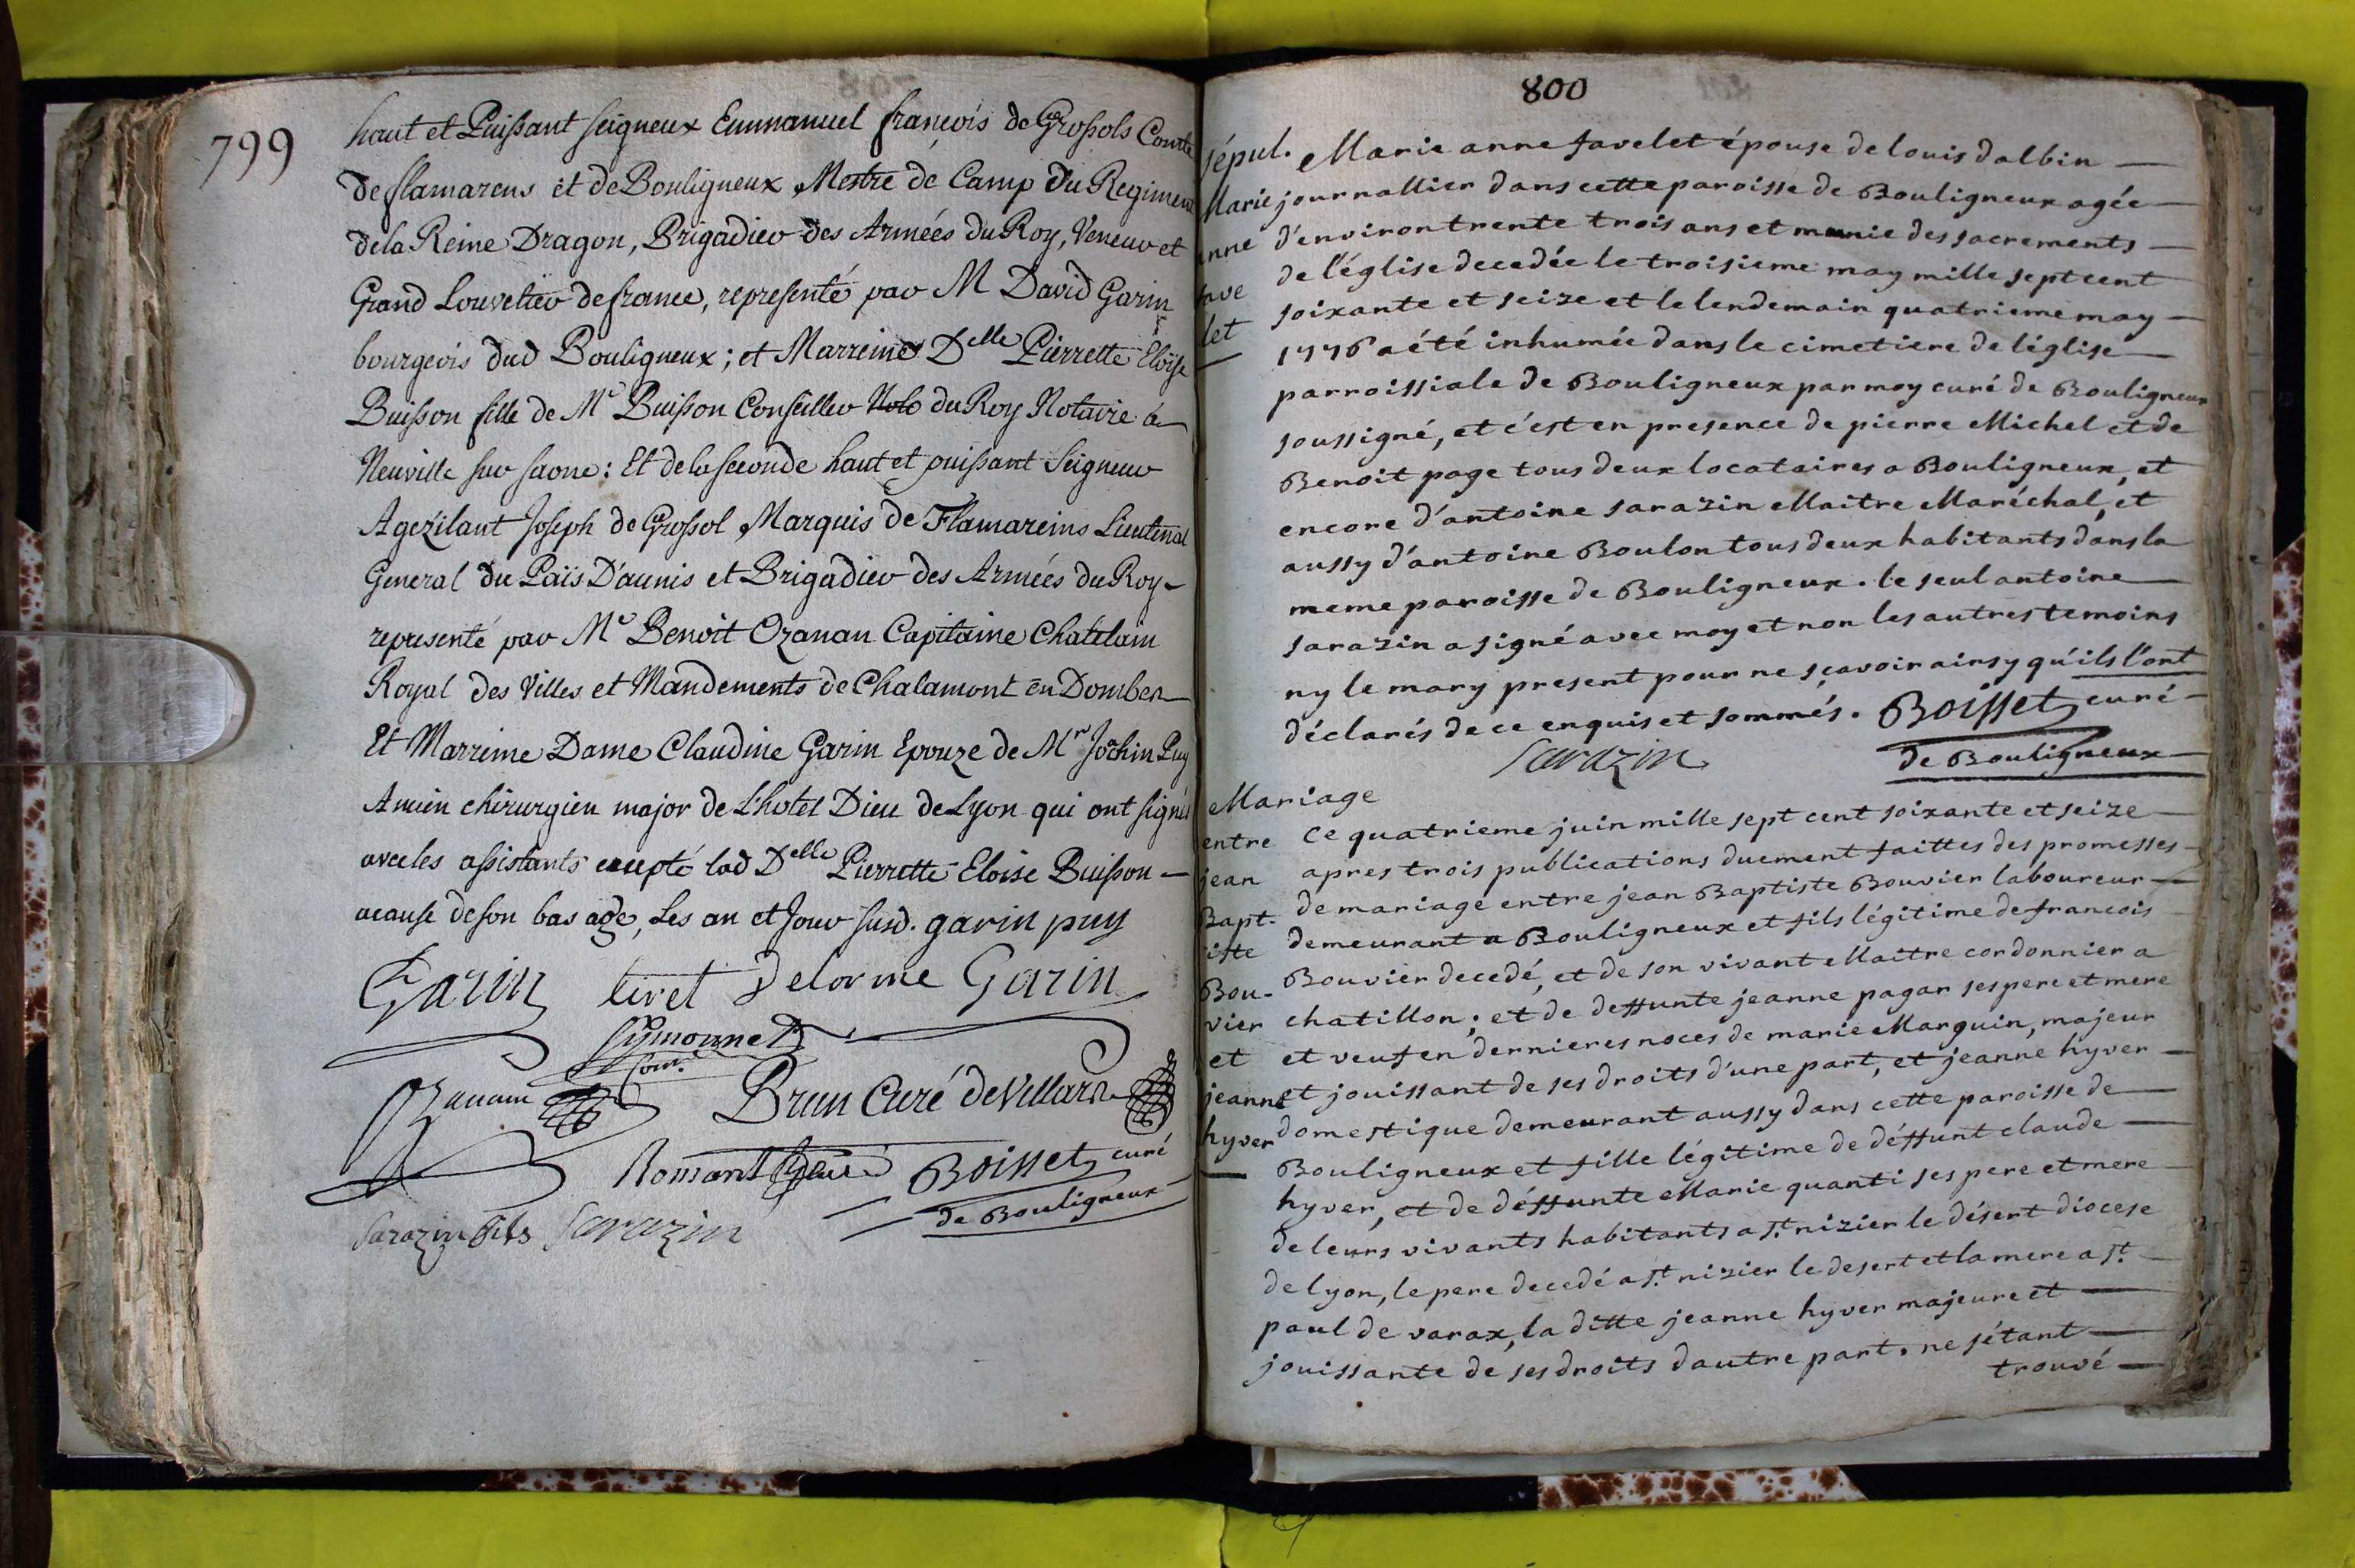 799
haut et Puissant seigneur Emmanuel françois de Grossols Comte
de flamarens et de Bouligneux, Mestre de Camp du Regiment
de la Reine Dragon, Brigadier des Armées du Roy, Veneur et
Grand Louvetier de france, representé par M David Garin
bourgeois dud Bouligneux; et Marreine Delle Pierrette Eloïse
Buisson fille de Mr Buisson Conseiller du Roy Notaire à
Neuville sur saone: Et de la seconde haut et puissant Seigneur
Agezilant Joseph de Grossol, Marquis de Flamareins Lieutenat
General du Païs D'aunis et Brigadier des Armées du Roy
representé par Mr Benoît Ozanan Capitaine Chatelain
Royal des Villes et Mandements de Chalamont en Dombes
Et Marreine Dame Claudine Garin Epouze de Mr Jochin Puy
Ancien chirurgien major de L'hotel Dieu de Lyon qui ont signés
avec les assistants excepté lad Delle Pierrette Eloïse Buisson
acause de son bas age, Les an et Jour susd. garin puy
Garin livet Delorme Garin
Symonnet
Com.
Ozanam Brun Curé de Villars
Romant Boisset curé
de Bouligneux
Sarazin fils Sarazin
800
sépul. Marie anne favelet épouse de louis dalbin
Marie journallier dans cette paroisse de Bouligneux agée
anne d'environ trente trois ans et munie des sacrements
de l'église decedée le troisieme may mille sept cent
fave soixante et seize et le lendemain quatrieme may
let 1776 a été inhumée dans le cimetiere de l'église
parroissiale de Bouligneux par moy curé de Bouligneux
soussigné, et c'est en presence de pierre Michel et de
Benoit page tous deux locataires a Bouligneux, et
encore d'antoine sarazin Maitre Maréchal, et
aussy d'antoine Boulon tous deux habitants dans la
meme paroisse de Bouligneux. le seul antoine
sarazin a signé avec moy et non les autres temoins
ny le mary present pour ne sçavoir ainsy qu'ils l'ont
déclarés de ce enquis et sommés. Boisset curé
Sarazin de Bouligneux
Mariage
entre ce quatrieme juin mille sept cent soixante et seize
jean apres trois publications duement faittes des promesses
Bapt- de mariage entre jean Baptiste Bouvier laboureur
iste demeurant a Bouligneux et fils légitime de francois
Bou- Bouvier decedé, et de son vivant Maitre cordonnier a
vier chatillon; et de deffunte jeanne pagar ses pere et mere
et et veuf en dernieres noces de marie Marguin, majeur
jeanne et jouissant de ses droits d'une part, et jeanne hyver
hyver domestique demeurant aussy dans cette paroisse de
Bouligneux et fille légitime de déffunt claude
hyver, et de déffunte Marie quanti ses pere et mere
de leurs vivants habitants a st. nizier le désert diocese
de lyon, le pere decedé a st. nizier le desert et la mere a st.
paul de varax, la ditte jeanne hyver majeure et
jouissante de ses droits d'autre part. ne s'étant
trouvé